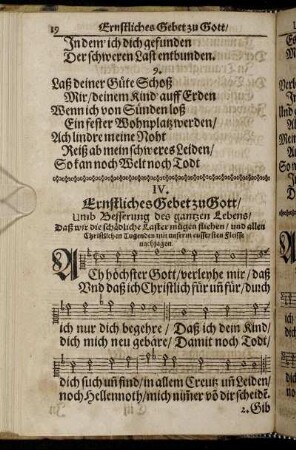 19 Ernstliches Gebet zu Gott/
In dem ich dich gefunden
Der schweren Last entbunden.
9.
Laß deiner Güte Schoß
Mir/ deinem Kind auff Erden
Wenn ich von Sünden loß
Ein fester Wohnplatz werden/
Ach lindre meine Noht
Reiß ab mein schweres Leiden/
So kan noch Welt noch Todt
IV.
Ernstliches Gebet zu Gott/
Umb Besserung des gantzen Lebens/
Daß wir die schädliche Laster mügen fliehen/ und allen
Christlichen Tugenden mit unserm eussersten Fleisse
nachjagen
ACh höchster Gott/ verleyhe mir/ daß
Und daß ich Christlich für uñ für/ durch
ich nur dich begehre/ Daß ich dein Kind/
dich mich neu gebäre/ Damit noch Todt/
dich such uñ find/ in allem Creutz uñ Leiden/
noch Hellennoth/ mich nim̃er võ dir scheidẽ.
2. Gib